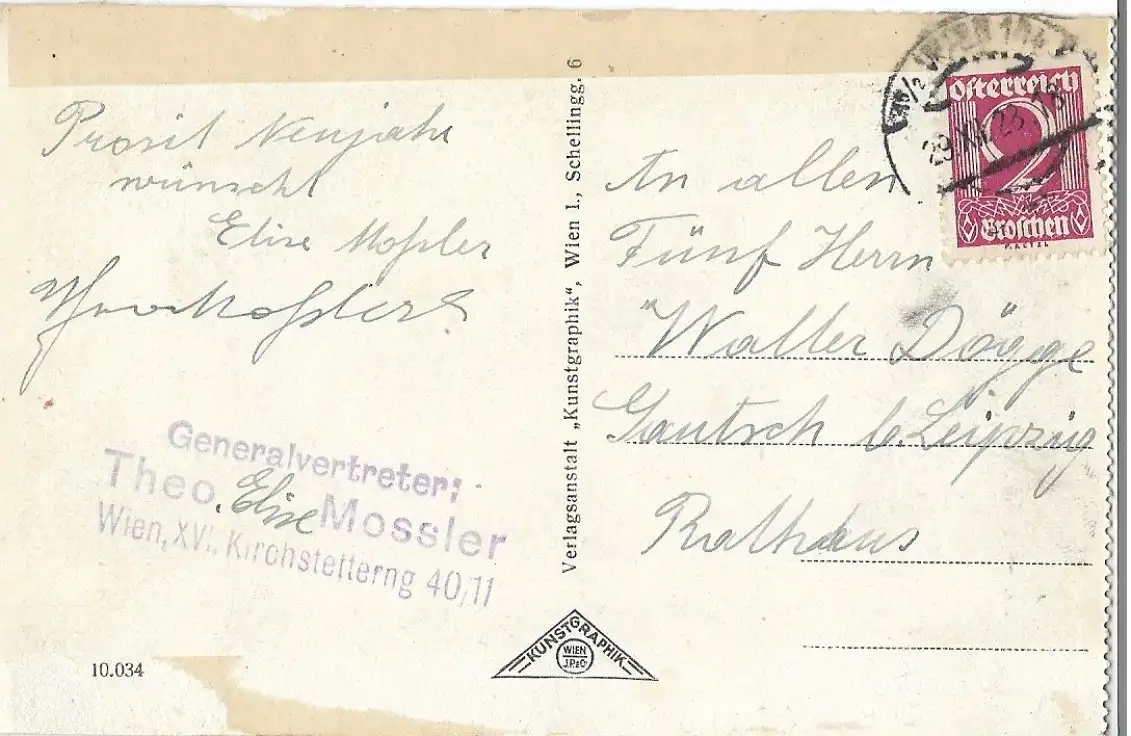 Prosit Neujahr
wünscht
Elise Moßler
Moßler
Generalvertreter:
Theo. Elise Mossler
Wien, XVI. Kirchstetterng 40/11
10.034
Verlagsanstalt „Kunstgraphik", Wien I., Schellingg. 6
KUNSTGRAPHIK
WIEN
J.P.&Co
WIEN
29.XII.23
österreich
2
Groschen
An allen
Fünf Herrn
"Walter Dögge
Gautsch b. Leipzig
Rathaus